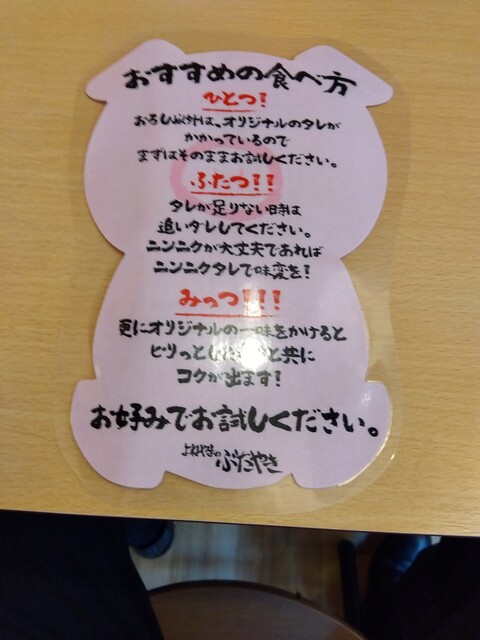 おすすめの食べ方
ひとつ!
おろし以外は、オリジナルのタレが
かかっているので
まずはそのままお試しください。
ふたつ!!
タレが足りない時は
追いダレしてください。
ニンニクが大丈夫であれば
ニンニクタレで味変を!
みっつ!!!
更にオリジナルの一味をかけると
ピリっとし と共に
コクが出ます!
お好みでお試しください。
ぶたやき